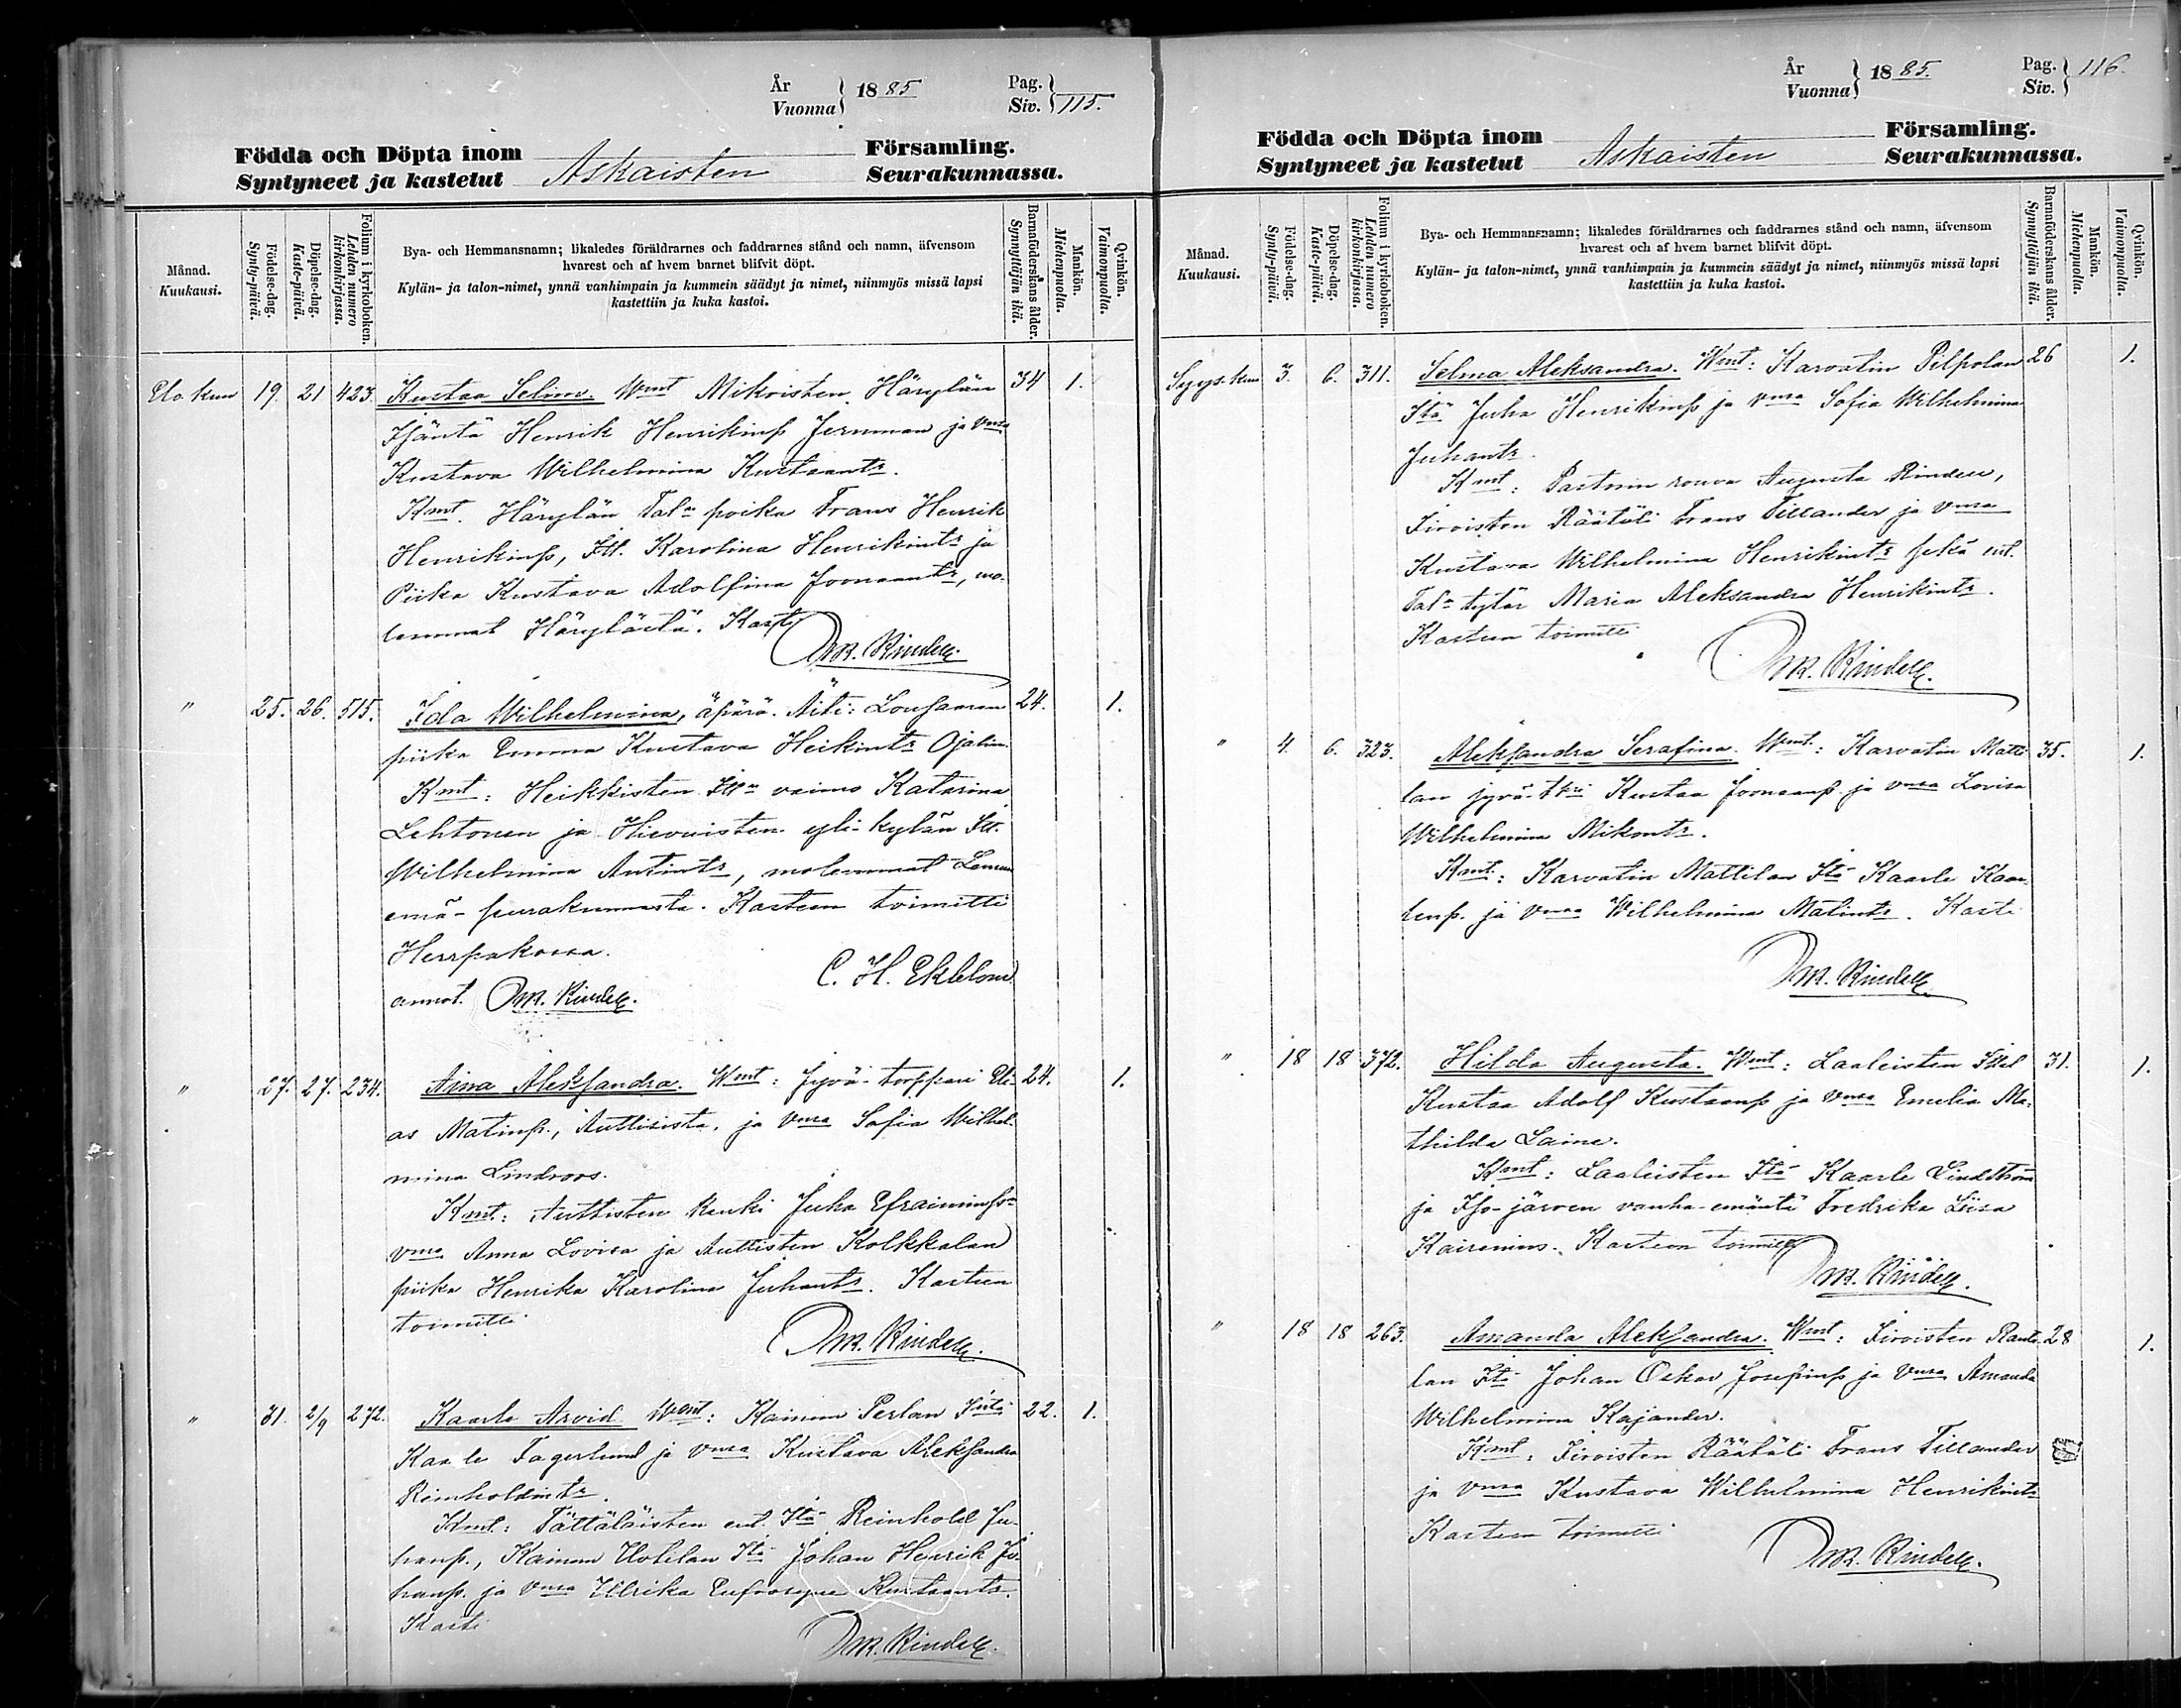 År
Vuonna } 1885 Pag.
Siv. } 115.
Födda och Döpta inom Församling.
Syntyneet ja kastetut Askaisten Seurakunnassa.
Månad.
Kuukausi.
Födelse-dag.
Synty-päivä.
Döpelse-dag.
Kaste-päivä.
Folium i kyrkoboken.
Lehden numero
kirkonkirjassa.
Bya- och Hemmansnamn; likaledes föräldrarnes och faddrarnes stånd och namn, äfvensom
hvarest och af hvem barnet blifvit döpt.
Kylän- ja talon-nimet, ynnä vanhimpain ja kummein säädyt ja nimet, niinmyös missä lapsi
kastettiin ja kuka kastoi.
Barnaföderskans ålder.
Synnyttäjän ikä.
Mankön.
Miehenpuolta.
Qvinkön.
Vaimonpuolta.
Elo kuu 19. 21 423. Kustaa Selim. Wmt Mikoisten Härylän 34 1.
Isäntä Henrik Henrikinp Jernman ja vmsa
Kustava Wilhelmina Kustaantr.
Kmt. Härylän Taln poika Frans Henrik
Henrikinp, Itl. Karolina Henrikintr ja
Piika Kustava Adolfina Joonaantr, mo-
lemmat Härylästä. Kasti
Rindell.
" 25. 26. 515. Ida Wilhelmina, äpärä. Äiti: Lousaaren 24. 1.
piika Emma Kustava Heikintr Ojalin.
Kmt: Heikkisten Itn vaimo Katarina
Lehtonen ja Hievoisten yli-kylän Itl.
Wilhelmina Antintr, molemmat Lemun
emä-seurakunnasta. Kasteen toimitti
Herrpakossa.
C. H. Ekblom
annot. Rindell.
" 27. 27. 234. Aina Aleksandra. Wmt: Jyvä-torppari Eli- 24. 1.
as Matinp., Auttisista, ja vmsa Sofia Wilhel-
mina Lindroos.
Kmt: Auttisten Renki Juha Efraiminpn
vmsa Anna Lovisa ja Auttisten Kolkkalan
piika Henrika Karolina Juhantr. Kasteen
toimitti
Rindell.
" 31. 2/9 272. Kaarle Arvid. Wmt: Kainun Perlan 22. 1.
Kaarle Fagerlund ja vmsa Kustava Aleksandra
Reinholdintr.
Kmt: Tättäläisten ent. Itä Reinhold Ju-
hanp., Kainun Uotilan Itä Johan Henrik Ju-
hanp. ja vmsa Ulrika Eufrosyne Kustaantr.
Kasti
Rindell.
År
Vuonna } 1885. Pag.
Siv. } 116.
Födda och Döpta inom Församling.
Syntyneet ja kastetut Askaisten Seurakunnassa.
Månad.
Kuukausi.
Födelse-dag.
Synty-päivä.
Döpelse-dag.
Kaste-päivä.
Folium i kyrkoboken.
Lehden numero
kirkonkirjassa.
Bya- och Hemmansnamn; likaledes föräldrarnes och faddrarnes stånd och namn, äfvensom
hvarest och af hvem barnet blifvit döpt.
Kylän- ja talon-nimet, ynnä vanhimpain ja kummein säädyt ja nimet, niinmyös missä lapsi
kastettiin ja kuka kastoi.
Barnaföderskans ålder.
Synnyttäjän ikä.
Mankön.
Miehenpuolta.
Qvinkön.
Vaimonpuolta.
Syys.kuu 3. 6. 311. Selma Aleksandra. Wmt: Karvatin Pilpolan 26 1.
Itä Juha Henrikinp ja vmsa Sofia Wilhelmina
Juhantr.
Kmt: Pastorin rouva Augusta Rindell,
Iiroisten Räätäli Frans Tillander ja vmsa
Kustava Wilhelmina Henrikintr sekä ent.
Taln tytär Maria Aleksandra Henrikintr.
Kasteen toimitti
Rindell.
" 4. 6. 323. Aleksandra Serafina. Wmt: Karvatin Matti- 35. 1.
lan jyvä-tkri Kustaa Joonaanp ja vmsa Lovisa
Wilhelmina Mikontr.
Kmt: Karvatin Mattilan Itä Kaarle Kaar-
lenp. ja vmsa Wilhelmina Matintr. Kasti
Rindell
" 18 18 372. Hilda Augusta. Wmt: Laaleisten Itel 31. 1.
Kustaa Adolf Kustaanp ja vmsa Emelia Ma-
thilda Laine.
Kmt: Laaleisten Itä Kaarle Lindström
ja Iso-järven vanha-emäntä Fredrika Liisa
Kairenius. Kasteen toimitti
Rindell.
" 18 18 263. Amanda Aleksandra. Wmt: Iiroisten Ranta- 28 1.
lan Itä Johan Oskar Josefinp ja vmsa Amanda
Wilhelmina Kajander.
Kmt: Iiroisten Räätäli Frans Tillander
ja vmsa Kustava Wilhelmina Henrikintr
Kasteen toimitti
Rindell.